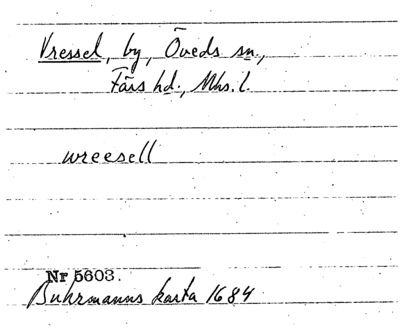 Vressel, by, Öveds sn.,
Färs hd., Mhs. l.
wreesell
Nr 5603.
Buhrmanns karta 1684